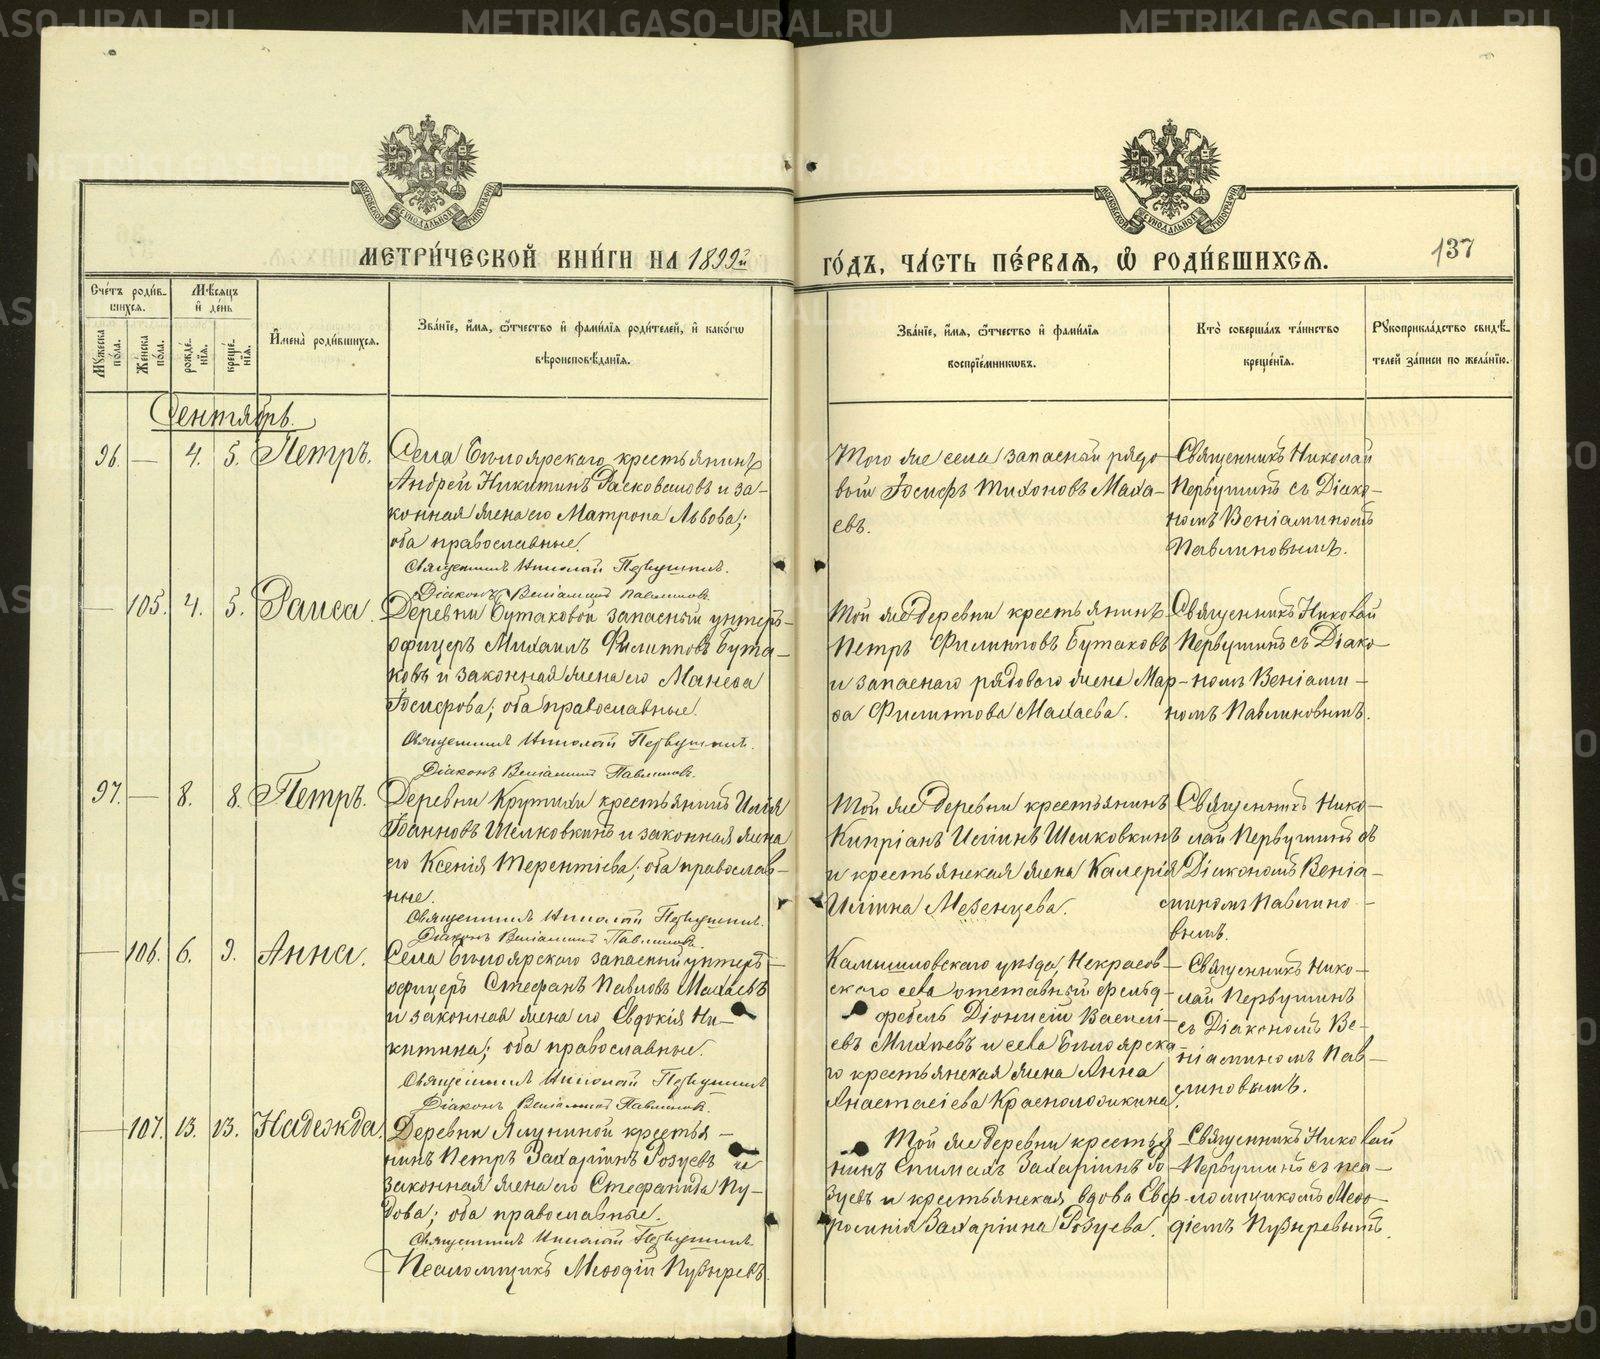 METRIKI.GASO-URAL.RU
МЕТРИ́ЧЕСКОЙ КНИ́ГИ НА 1899й
ГО́ДЪ, ЧА́СТЬ ПЕ́РВАѦ, Ѡ҆ РОДИ́ВШИХСѦ.
137
Сче́тъ роди́в-
шихсѧ.
Мѣ́сѧцъ
и҆ де́нь
Мꙋ́жеска по́ла.
Же́нска по́ла.
рожде́-
нїѧ.
креще́-
нїѧ.
И҆мена̀ роди́вшихсѧ.
Зва́нїе, и҆́мѧ, ѻ҆́тчество и҆ фами́лїѧ роди́телей, и҆ како́гѡ
вѣроисповѣ́данїѧ.
Зва́нїе, и҆́мѧ, ѻ҆́тчество и҆ фами́лїѧ
воспрїе́мникѡвъ.
Кто̀ соверша́лъ та́инство
креще́нїѧ.
Рꙋкоприкла́дство свидѣ́-
телей за́писи по жела́нїю.
Сентябрь.
96. — 4. 5. Петръ.
Села Бѣлоярскаго крестьянинъ
Андрей Никитинъ Расковаловъ и за-
конная жена его Матрона Львова;
оба православные.
Священникъ Николай Первушинъ.
Діаконъ Веніаминъ Павлиновъ.
Того же села запасный рядо-
вой Іосифъ Тихоновъ Маха-
евъ.
Священникъ Николай
Первушинъ съ Діако-
номъ Веніаминомъ
Павлиновымъ.
— 105. 4. 5. Раиса.
Деревни Бутаковой запасный унтеръ-
офицеръ Михаилъ Филипповъ Бута-
ковъ и законная жена его Манефа
Іосифова; оба православные.
Священникъ Николай Первушинъ.
Діаконъ Веніаминъ Павлиновъ.
Той же деревни крестьянинъ
Петръ Филипповъ Бутаковъ
и запаснаго рядового жена Мар-
ѳа Филиппова Махаева.
Священникъ Николай
Первушинъ съ Діако-
номъ Веніами-
номъ Павлиновымъ.
97. — 8. 8. Петръ.
Деревни Крутихи крестьянинъ Илія
Іоанновъ Шелковкинъ и законная жена
его Ксенія Терентіева; оба православ-
ные.
Священникъ Николай Первушинъ.
Діаконъ Веніаминъ Павлиновъ.
Той же деревни крестьянинъ
Кипріанъ Иліинъ Шелковкинъ
и крестьянская жена Калерія
Иліина Мезенцева.
Священникъ Нико-
лай Первушинъ съ
Діакономъ Веніа-
миномъ Павлино-
вымъ.
— 106. 6. 9. Анна.
Села Бѣлоярскаго запасный унтеръ-
офицеръ Стефанъ Павловъ Махаевъ
и законная жена его Евдокія Ни-
китина; оба православные.
Священникъ Николай Первушинъ
Діаконъ Веніаминъ Павлиновъ.
Камышловскаго уѣзда, Некрасов-
скаго села отставный фельд-
фебель Діонисій Василі-
евъ Михѣевъ и села Бѣлоярска-
го крестьянская жена Анна
Анастасіева Красноложкина.
Священникъ Нико-
лай Первушинъ
съ Діакономъ Ве-
ніаминомъ Пав-
линовымъ.
— 107. 13. 13. Надежда.
Деревни Ялуниной крестья-
нинъ Петръ Захаріинъ Розуевъ и
законная жена его Стефанида Іу-
дова; оба православные.
Священникъ Николай Первушинъ
Псаломщикъ Меѳодій Пузыревъ.
Той же деревни крестья-
нинъ Епимахъ Захаріинъ Ро-
зуевъ и крестьянская вдова Евф-
росинія Захаріина Розуева.
Священникъ Николай
Первушинъ съ пса-
ломщикомъ Меѳо-
діемъ Пузыревымъ.